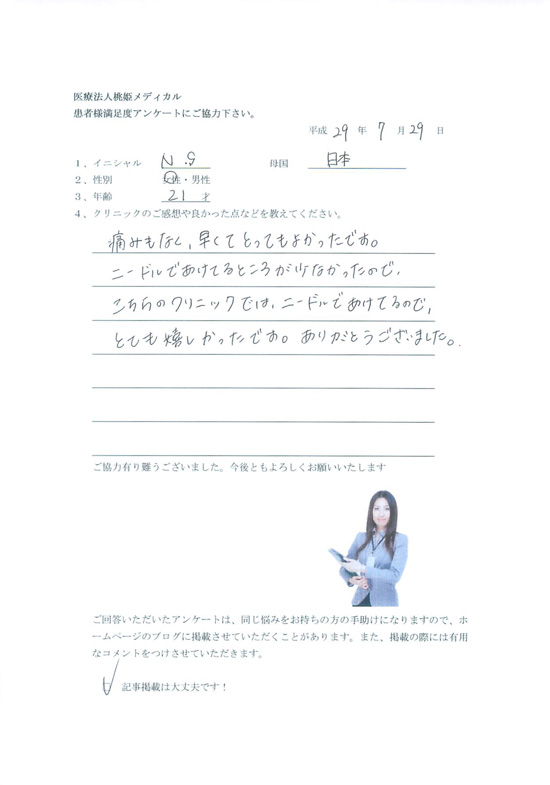 医療法人桃姫メディカル
患者様満足度アンケートにご協力下さい。
平成 29 年 7 月 29 日
1、イニシャル N.S 母国 日本
2、性別 女性・男性
3、年齢 21 才
4、クリニックのご感想や良かった点などを教えてください。
痛みもなく、早くてとってもよかったです。
ニードルであけてるところが少なかったので、
こちらのクリニックでは、ニードルであけてるので、
とても嬉しかったです。ありがとうございました。
ご協力有り難うございました。今後ともよろしくお願いいたします
ご回答いただいたアンケートは、同じ悩みをお持ちの方の手助けになりますので、ホ
ームページのブログに掲載させていただくことがあります。また、掲載の際には有用
なコメントをつけさせていただきます。
記事掲載は大丈夫です！